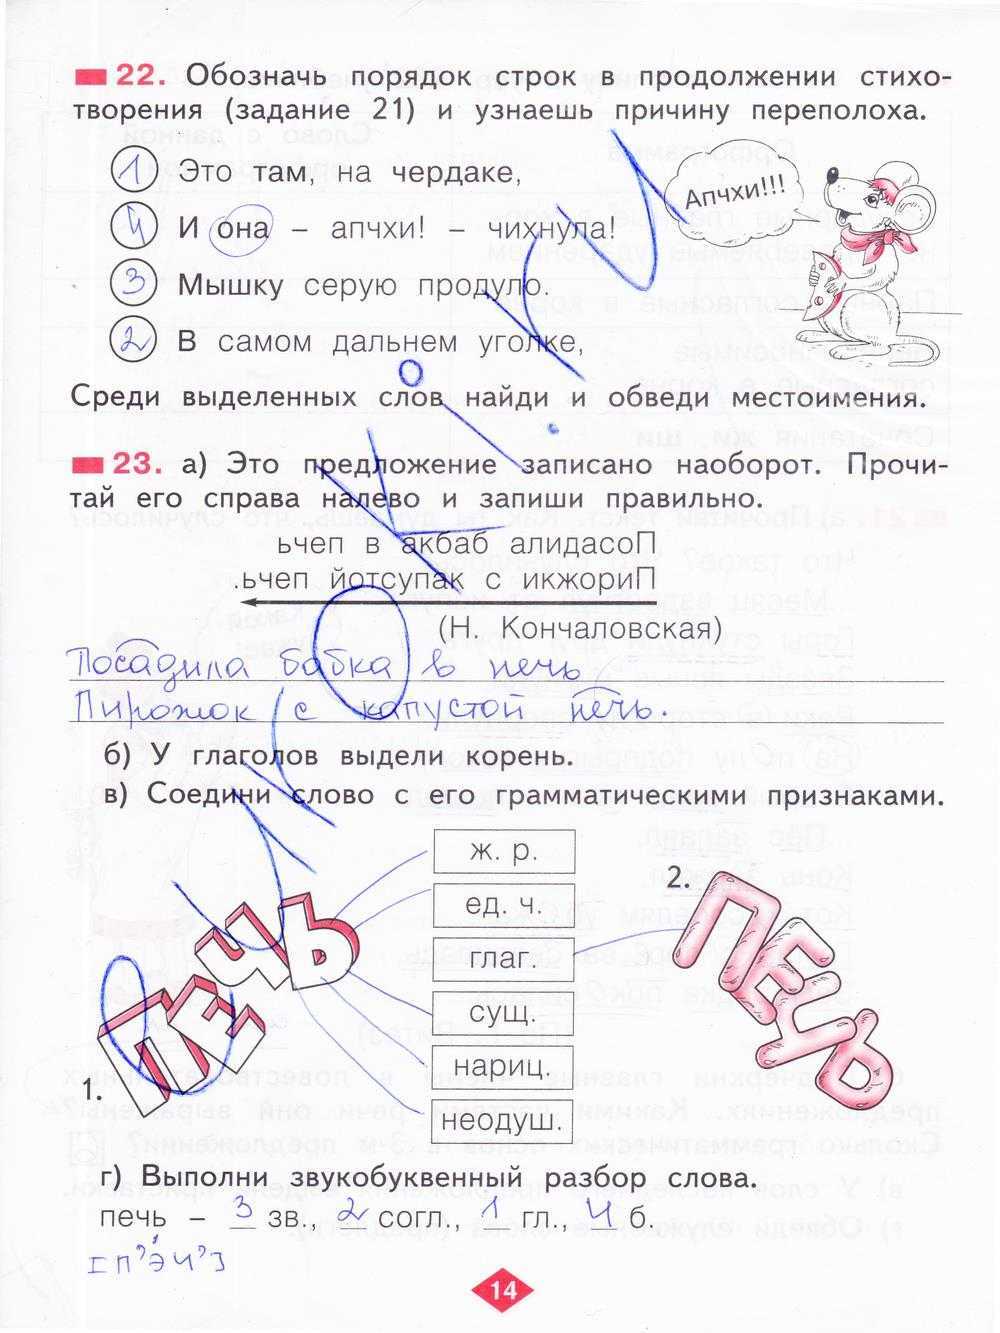 22. Обозначь порядок строк в продолжении стихо-
творения (задание 21) и узнаешь причину переполоха.
1 Это там, на чердаке,
Апчхи!!!
4 И она – апчхи! – чихнула!
3 Мышку серую продуло.
2 В самом дальнем уголке,
Среди выделенных слов найди и обведи местоимения.
23. а) Это предложение записано наоборот. Прочи-
тай его справа налево и запиши правильно.
ьчеп в акбаб алидасоП
.ьчеп йотсупак с икжориП
(Н. Кончаловская)
Посадила бабка в печь
Пирожок с капустой печь.
б) У глаголов выдели корень.
в) Соедини слово с его грамматическими признаками.
ж. р.
2.
ед. ч.
ПЕЧЬ
глаг.
ПЕЧЬ
сущ.
нариц.
1.
неодуш.
г) Выполни звукобуквенный разбор слова.
печь – 3 зв., 2 согл., 1 гл., 4 б.
[п'эч']
14